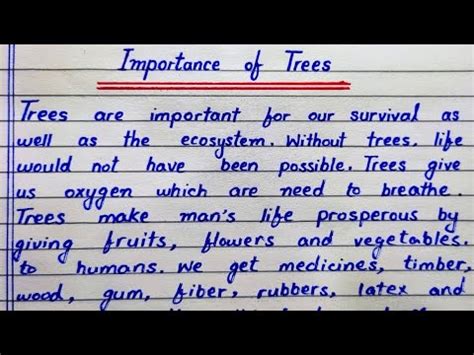 Importance of Trees
Trees are important for our survival as
well as the ecosystem. Without trees, life
would not have been possible. Trees give
us oxygen which are need to breathe.
Trees make man's life prosperous by
giving fruits, flowers and vegetables.
to humans. We get medicines, timber,
wood, gum, fiber, rubbers, latex and